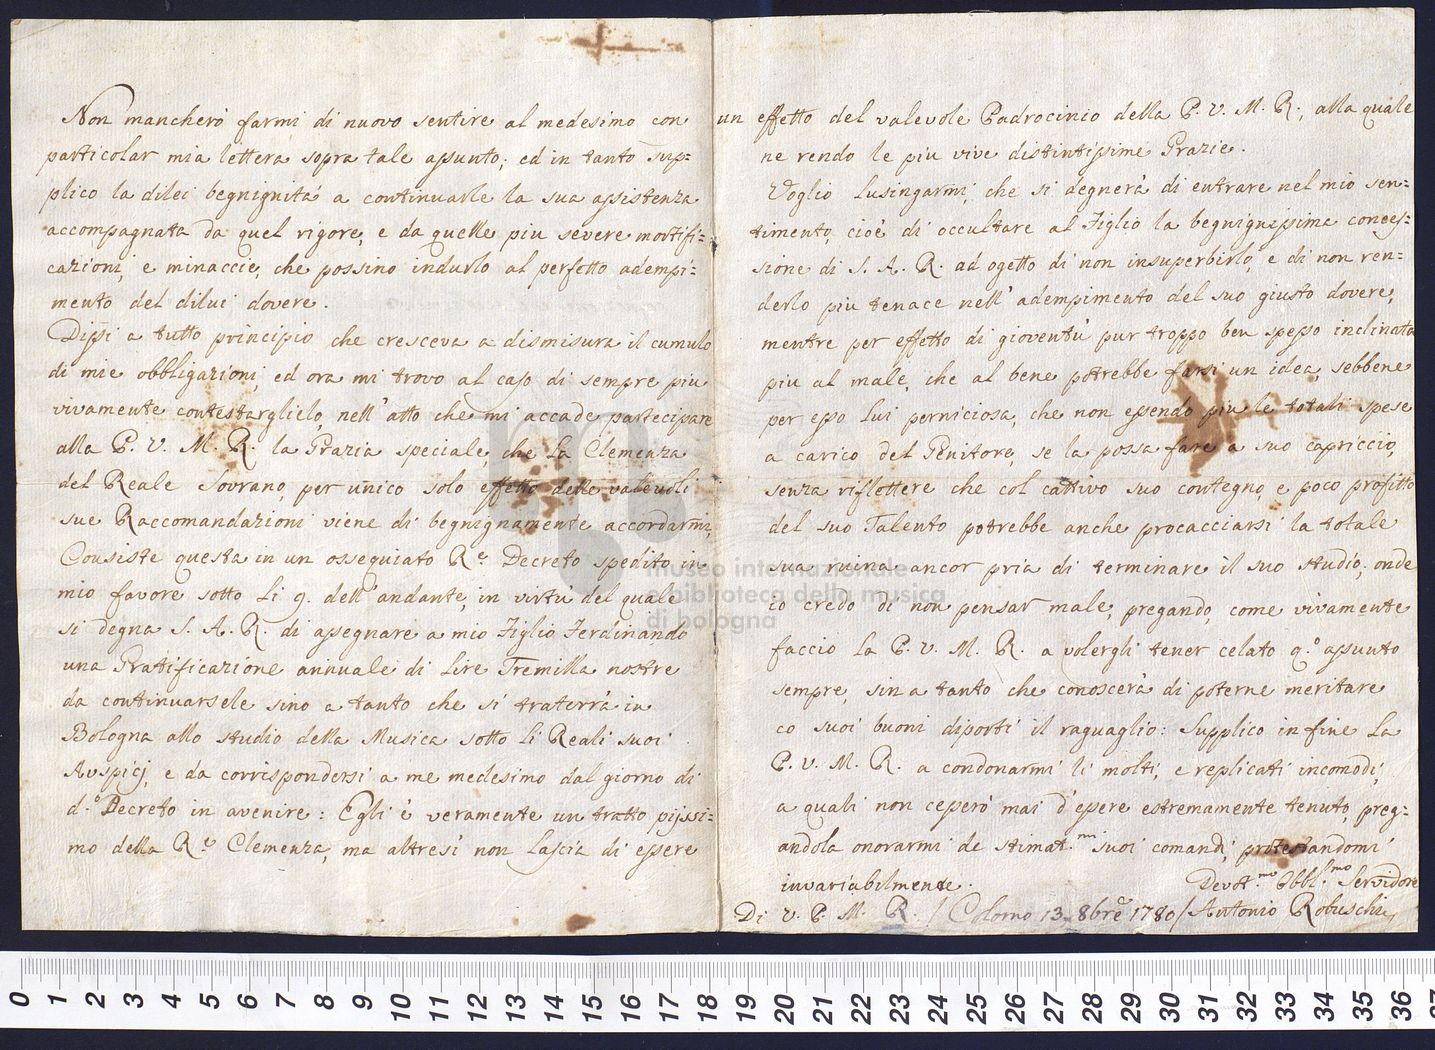 Non mancherò farmi di nuovo sentire al medesimo con
particolar mia lettera sopra tale assunto; ed in tanto sup=
plico la dilei begnignità a continuarle la sua assistenza
accompagnata da quel rigore, e da quelle piu severe mortifi=
cazioni, e minaccie, che possino indurlo al perfetto adempi=
mento del dilui dovere.
Dissi a tutto principio che cresceva a dismisura il cumulo
di mie obbligazioni, ed ora mi trovo al caso di sempre piu
vivamente contestarglielo, nell' atto che mi accade partecipare
alla P. V. M. R. la Grazia speciale, che La Clemenza
del Reale Sovrano, per unico solo effetto delle valevoli
sue Raccomandazioni viene di begnignamente accordarmi,
Consiste questa in un ossequiato R.e Decreto spedito in
mio favore sotto Li 9. dell' andante, in virtù del quale
si degna S. A. R. di assegnare a mio Figlio Ferdinando
una Gratificazione annuale di Lire Tremilla nostre
da continuarsele sino a tanto che si tratterrà in
Bologna allo studio della Musica sotto Li Reali suoi
Auspicj, e da corrispondersi a me medesimo dal giorno di
d.o Decreto in avenire: Egli è veramente un tratto pijssi=
mo della R.e Clemenza, ma altresì non Lascia di essere
un effetto del valevole Padrocinio della P. V. M. R., alla quale
ne rendo le piu vive distintissime Grazie.
Voglio Lusingarmi, che si degnerà di entrare nel mio sen=
timento, cioè di occultare al Figlio la begnignissima conces=
sione di S. A. R. ad ogetto di non insuperbirlo, e di non ren=
derlo piu tenace nell' adempimento del suo giusto dovere,
mentre per effetto di gioventù pur troppo ben spesso inclinata
piu al male, che al bene potrebbe farsi un idea, sebbene
per esso Lui perniciosa, che non essendo piu le totali spese
a carico del Genitore, se la possa fare a suo capriccio,
senza riflettere che col cattivo suo contegno e poco profitto
del suo Talento potrebbe anche procacciarsi la totale
sua ruina ancor pria di terminare il suo studio; onde
io credo di non pensar male, pregando, come vivamente
faccio La P. V. M. R. a volergli tener celato q.o assunto
sempre, sin a tanto che conoscerà di poterne meritare
co suoi buoni diporti il raguaglio: Supplico in fine La
P. V. M. R. a condonarmi li molti, e replicati incomodi,
a quali non cesserò mai d'essere estremamente tenuto, preg=
andola onorarmi de stimat.mi suoi comandi, protestandomi
invariabilmente.
Devot.mo Obbl.mo Servidore
Di V. P. M. R. / Colorno 13. 8bre 1780 / Antonio Robuschi
museo internazionale
e biblioteca della musica
di bologna
0 1 2 3 4 5 6 7 8 9 10 11 12 13 14 15 16 17 18 19 20 21 22 23 24 25 26 27 28 29 30 31 32 33 34 35 36 37